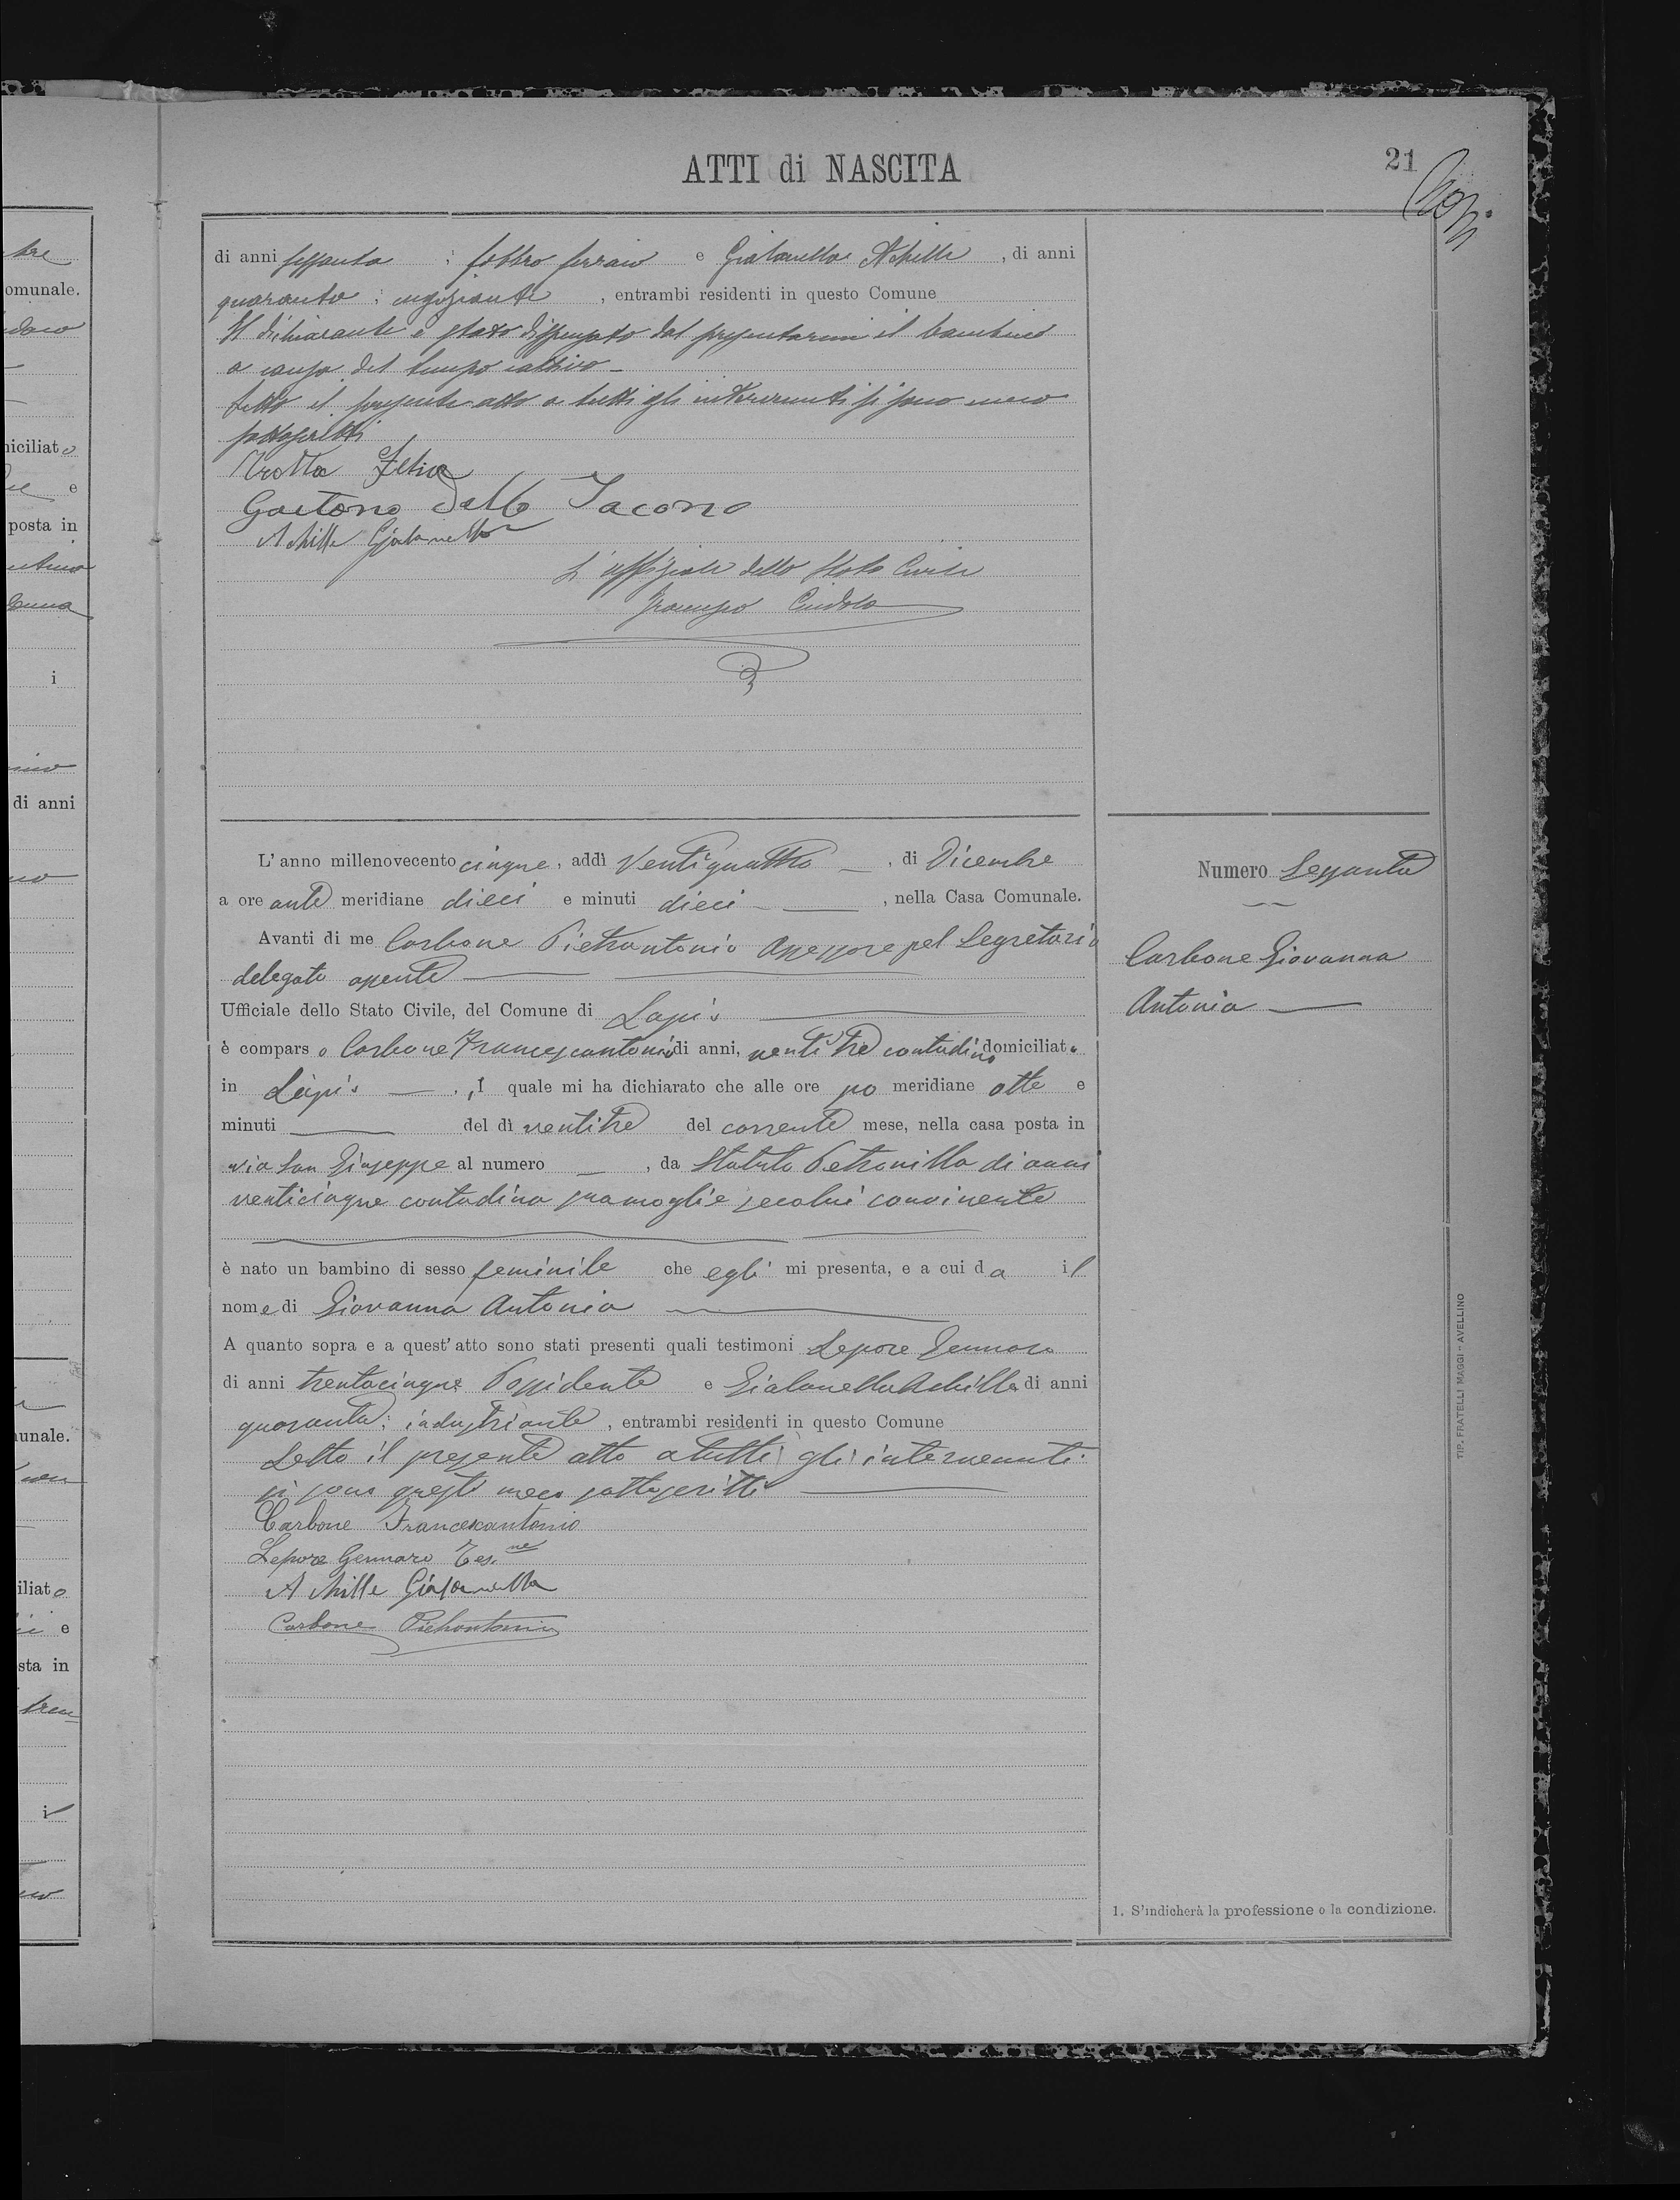 ATTI di NASCITA
21
di anni sessanta ; fabbro ferraio e Gialanella Achille , di anni
quaranta ; negoziante , entrambi residenti in questo Comune
Il dichiarante è stato dispensato dal presentarmi il bambino
a causa del tempo cattivo
Letto il presente atto a tutti gli intervenuti si sono meco
sottoscritti
Trotta Felice
Gaetano Dello Iacono
Achille Gialanella
L'uffiziale dello Stato Civile
L' anno millenovecento cinque, addì Ventiquattro , di Dicembre
a ore ante meridiane dieci e minuti dieci , nella Casa Comunale.
Avanti di me Carbone Pietrantonio Assessore pel Segretario
delegato assente
Ufficiale dello Stato Civile, del Comune di Lapio
è comparso Carbone Francescantonio di anni, ventitre contadino domiciliato
in Lapio , il quale mi ha dichiarato che alle ore po meridiane otto e
minuti del dì ventitre del corrente mese, nella casa posta in
via San Giuseppe al numero , da Statuto Petronilla di anni
venticinque contadina sua moglie secolui convivente
è nato un bambino di sesso feminile che egli mi presenta, e a cui da il
nome di Giovanna Antonia
A quanto sopra e a quest' atto sono stati presenti quali testimoni Lepore Gennaro
di anni trentacinque Possidente e Gialanella Achille di anni
quaranta; industriante , entrambi residenti in questo Comune
Letto il presente atto a tutti gli intervenuti
si sono questi meco sottoscritti
Carbone Francescantonio
Lepore Gennaro Tes.ne
Achille Gialanella
Carbone Pietrantonio
Numero Sessanta
Carbone Giovanna
Antonia
1. S'indicherà la professione o la condizione.
TIP. FRATELLI MAGGI - AVELLINO
omunale.
niciliato
e
posta in
i
di anni
unale.
iliato
e
sta in